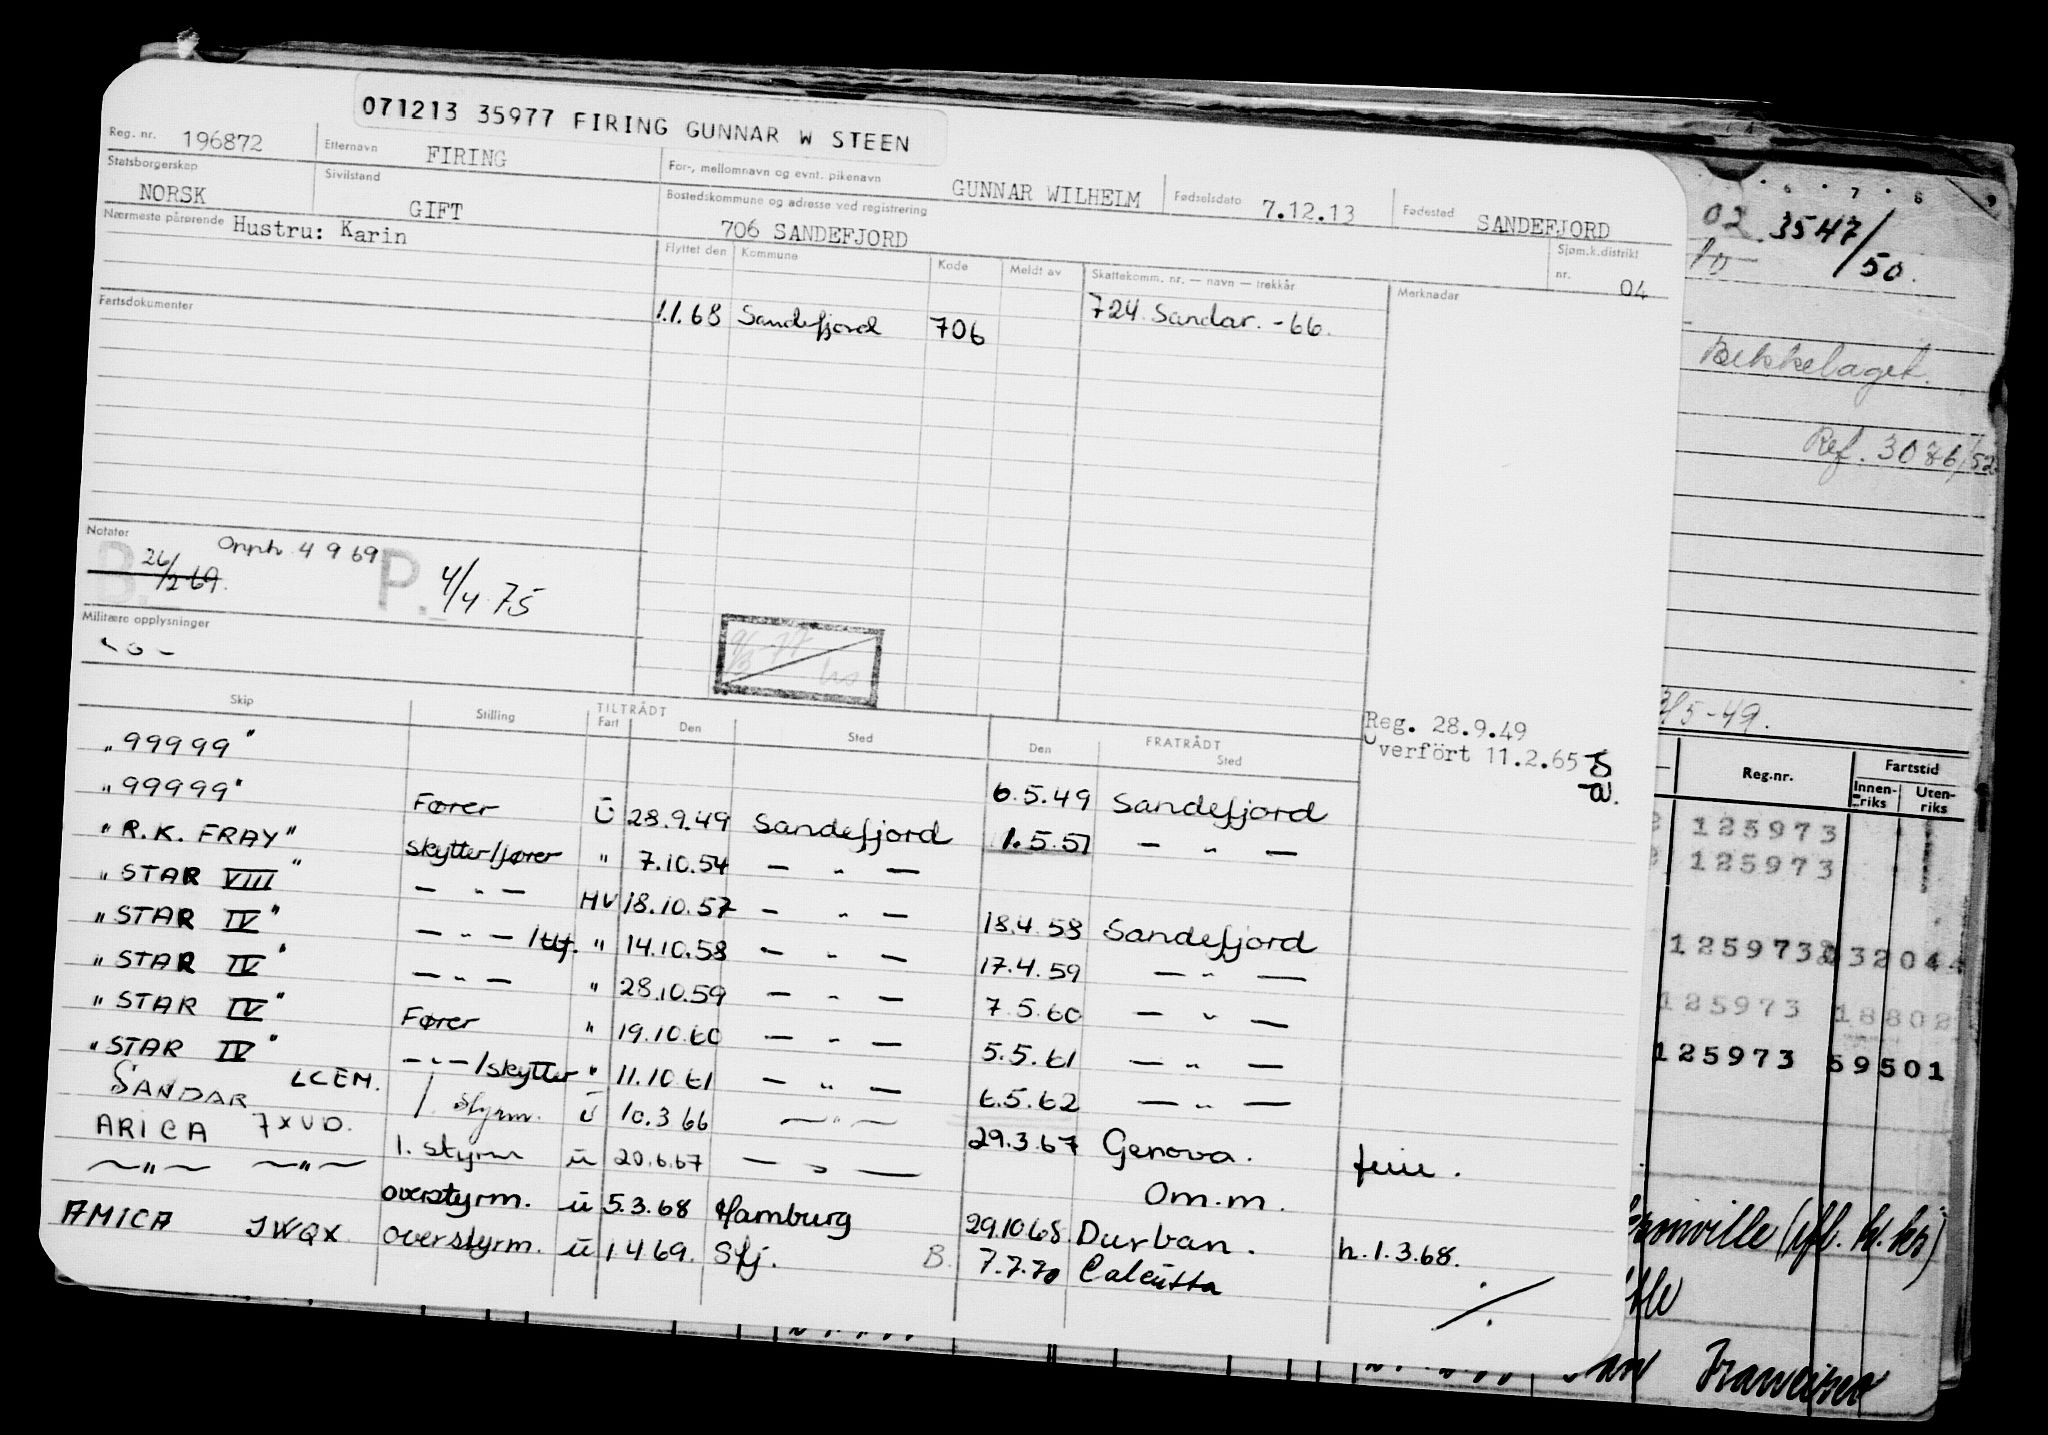 071213 35977 FIRING GUNNAR W STEEN
Reg. nr. 196872 Etternavn FIRING For-, mellomnavn og evnt. pikenavn GUNNAR WILHELM Fødselsdato 7.12.13 Fødested SANDEFJORD
Statsborgerskap NORSK Sivilstand GIFT Bostedskommune og adresse ved registrering 706 SANDEFJORD Sjøm.k.distrikt nr. 04
Nærmeste pårørende Hustru: Karin
Flyttet den Kommune Kode Meldt av Skattekomm. nr. — navn — trekkår Merknader
Fartsdokumenter
1.1.68 Sandefjord 706 724 Sandar. -66.
Notater
B. 26/2-69. Opph. 4 9 69 P. 4/4.75
Militære opplysninger
9/3-77
Reg. 28.9.49
Överfört 11.2.65
Skip Stilling TILTRÅDT Fart Den Sted FRATRÅDT Den Sted
"99999" 6.5.49 Sandefjord
"99999" Fører U 28.9.49 Sandefjord 1.5.51 — " —
"R.K. FRAY" Skytter/fører " 7.10.54 — " —
"STAR VIII" — " — HV 18.10.57 — " — 18.4.58 Sandefjord
"STAR IV" — " — /tlf. " 14.10.58 — " — 17.4.59 — " —
"STAR IV" — " — " 28.10.59 — " — 7.5.60 — " —
"STAR IV" Fører " 19.10.60 — " — 5.5.61 — " —
"STAR IV" — " — /skytter " 11.10.61 — " — 6.5.62 — " —
SANDAR LCEM. 1 Styrm. U 10.3 66 — " — 29.3.67 Genova. ferie.
ARICA 7XUD. 1. styrm U 20.6.67 — " — Om.m.
— " — — " — overstyrm. U 5.3.68 Hamburg 29.10 68 Durban. h.1.3.68.
AMICA JWQX overstyrm. U 1 4 69. Sfj. B. 7.7.70 Calcutta
6 7 8 9
02 3547/50.
10
Bekkelaget.
Ref. 3086/52
3/5-49.
Reg.nr. Fartstid
Innenriks Utenriks
125973
125973
125973 32044
125973 18802
125973 59501